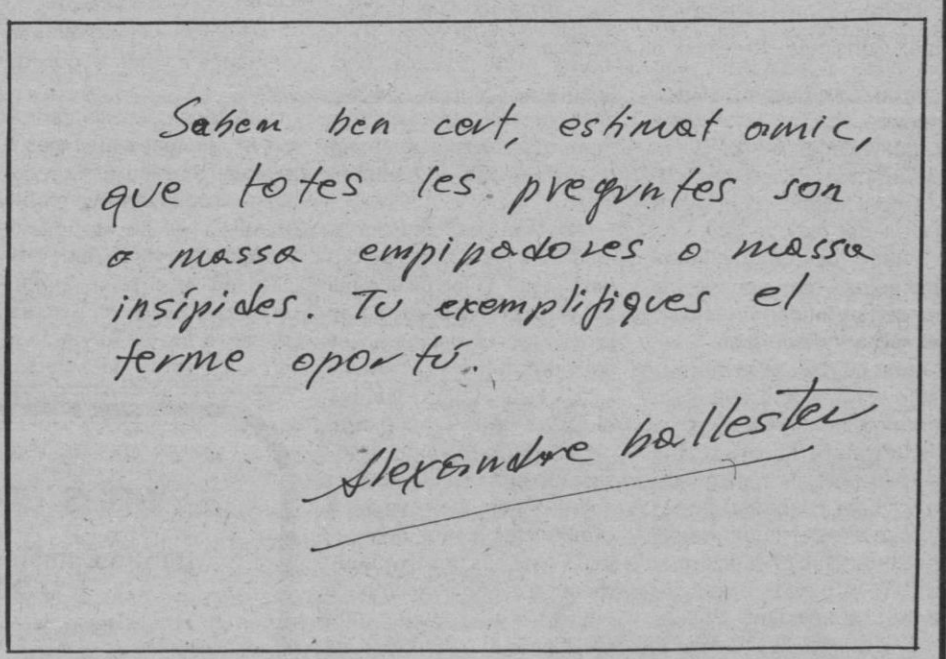 Sabem ben cert, estimat amic,
que totes les preguntes son
o massa empipadores o massa
insípides. Tu exemplifiques el
terme oportú.
Alexandre ballester